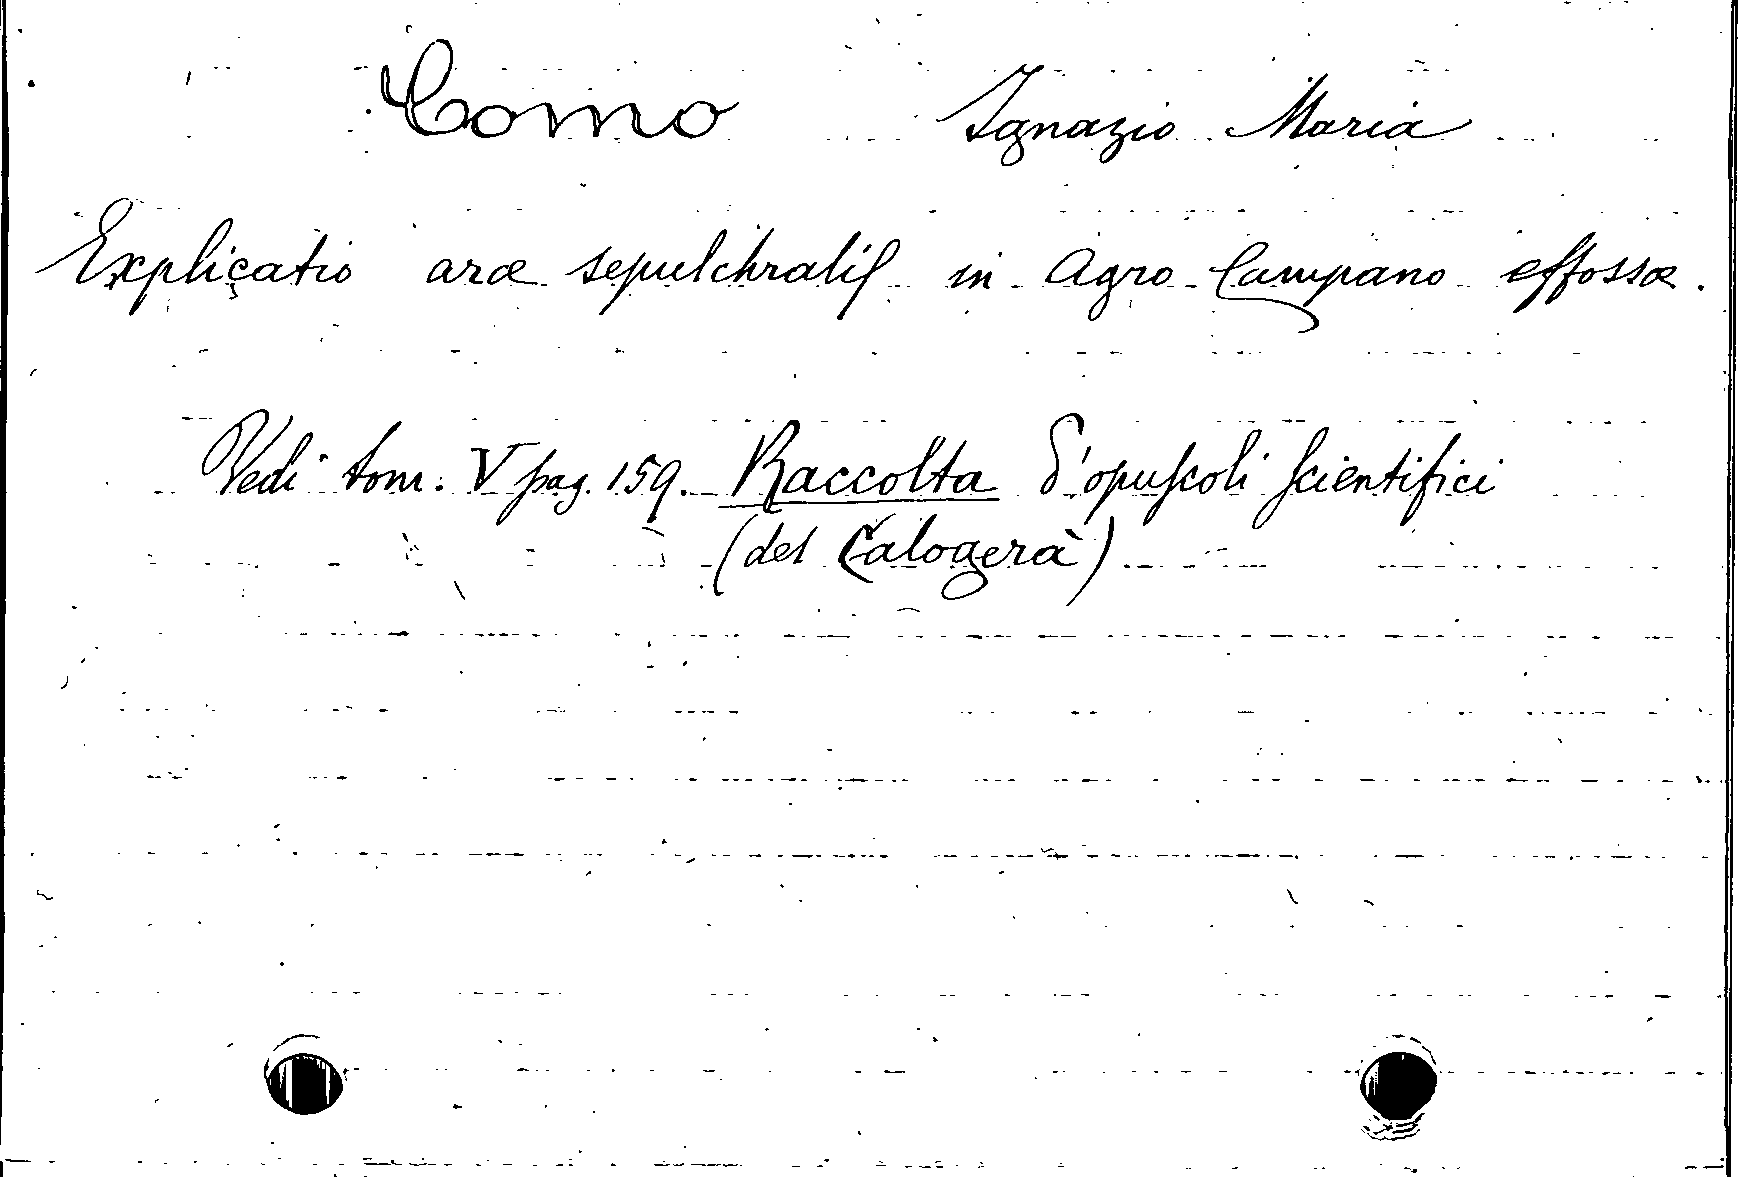 Como Ignazio Maria
Explicatio aræ sepulchralis in Agro Campano effossæ.
Vedi tom. V pag. 159. Raccolta d'opuscoli scientifici
(del Calogerà)